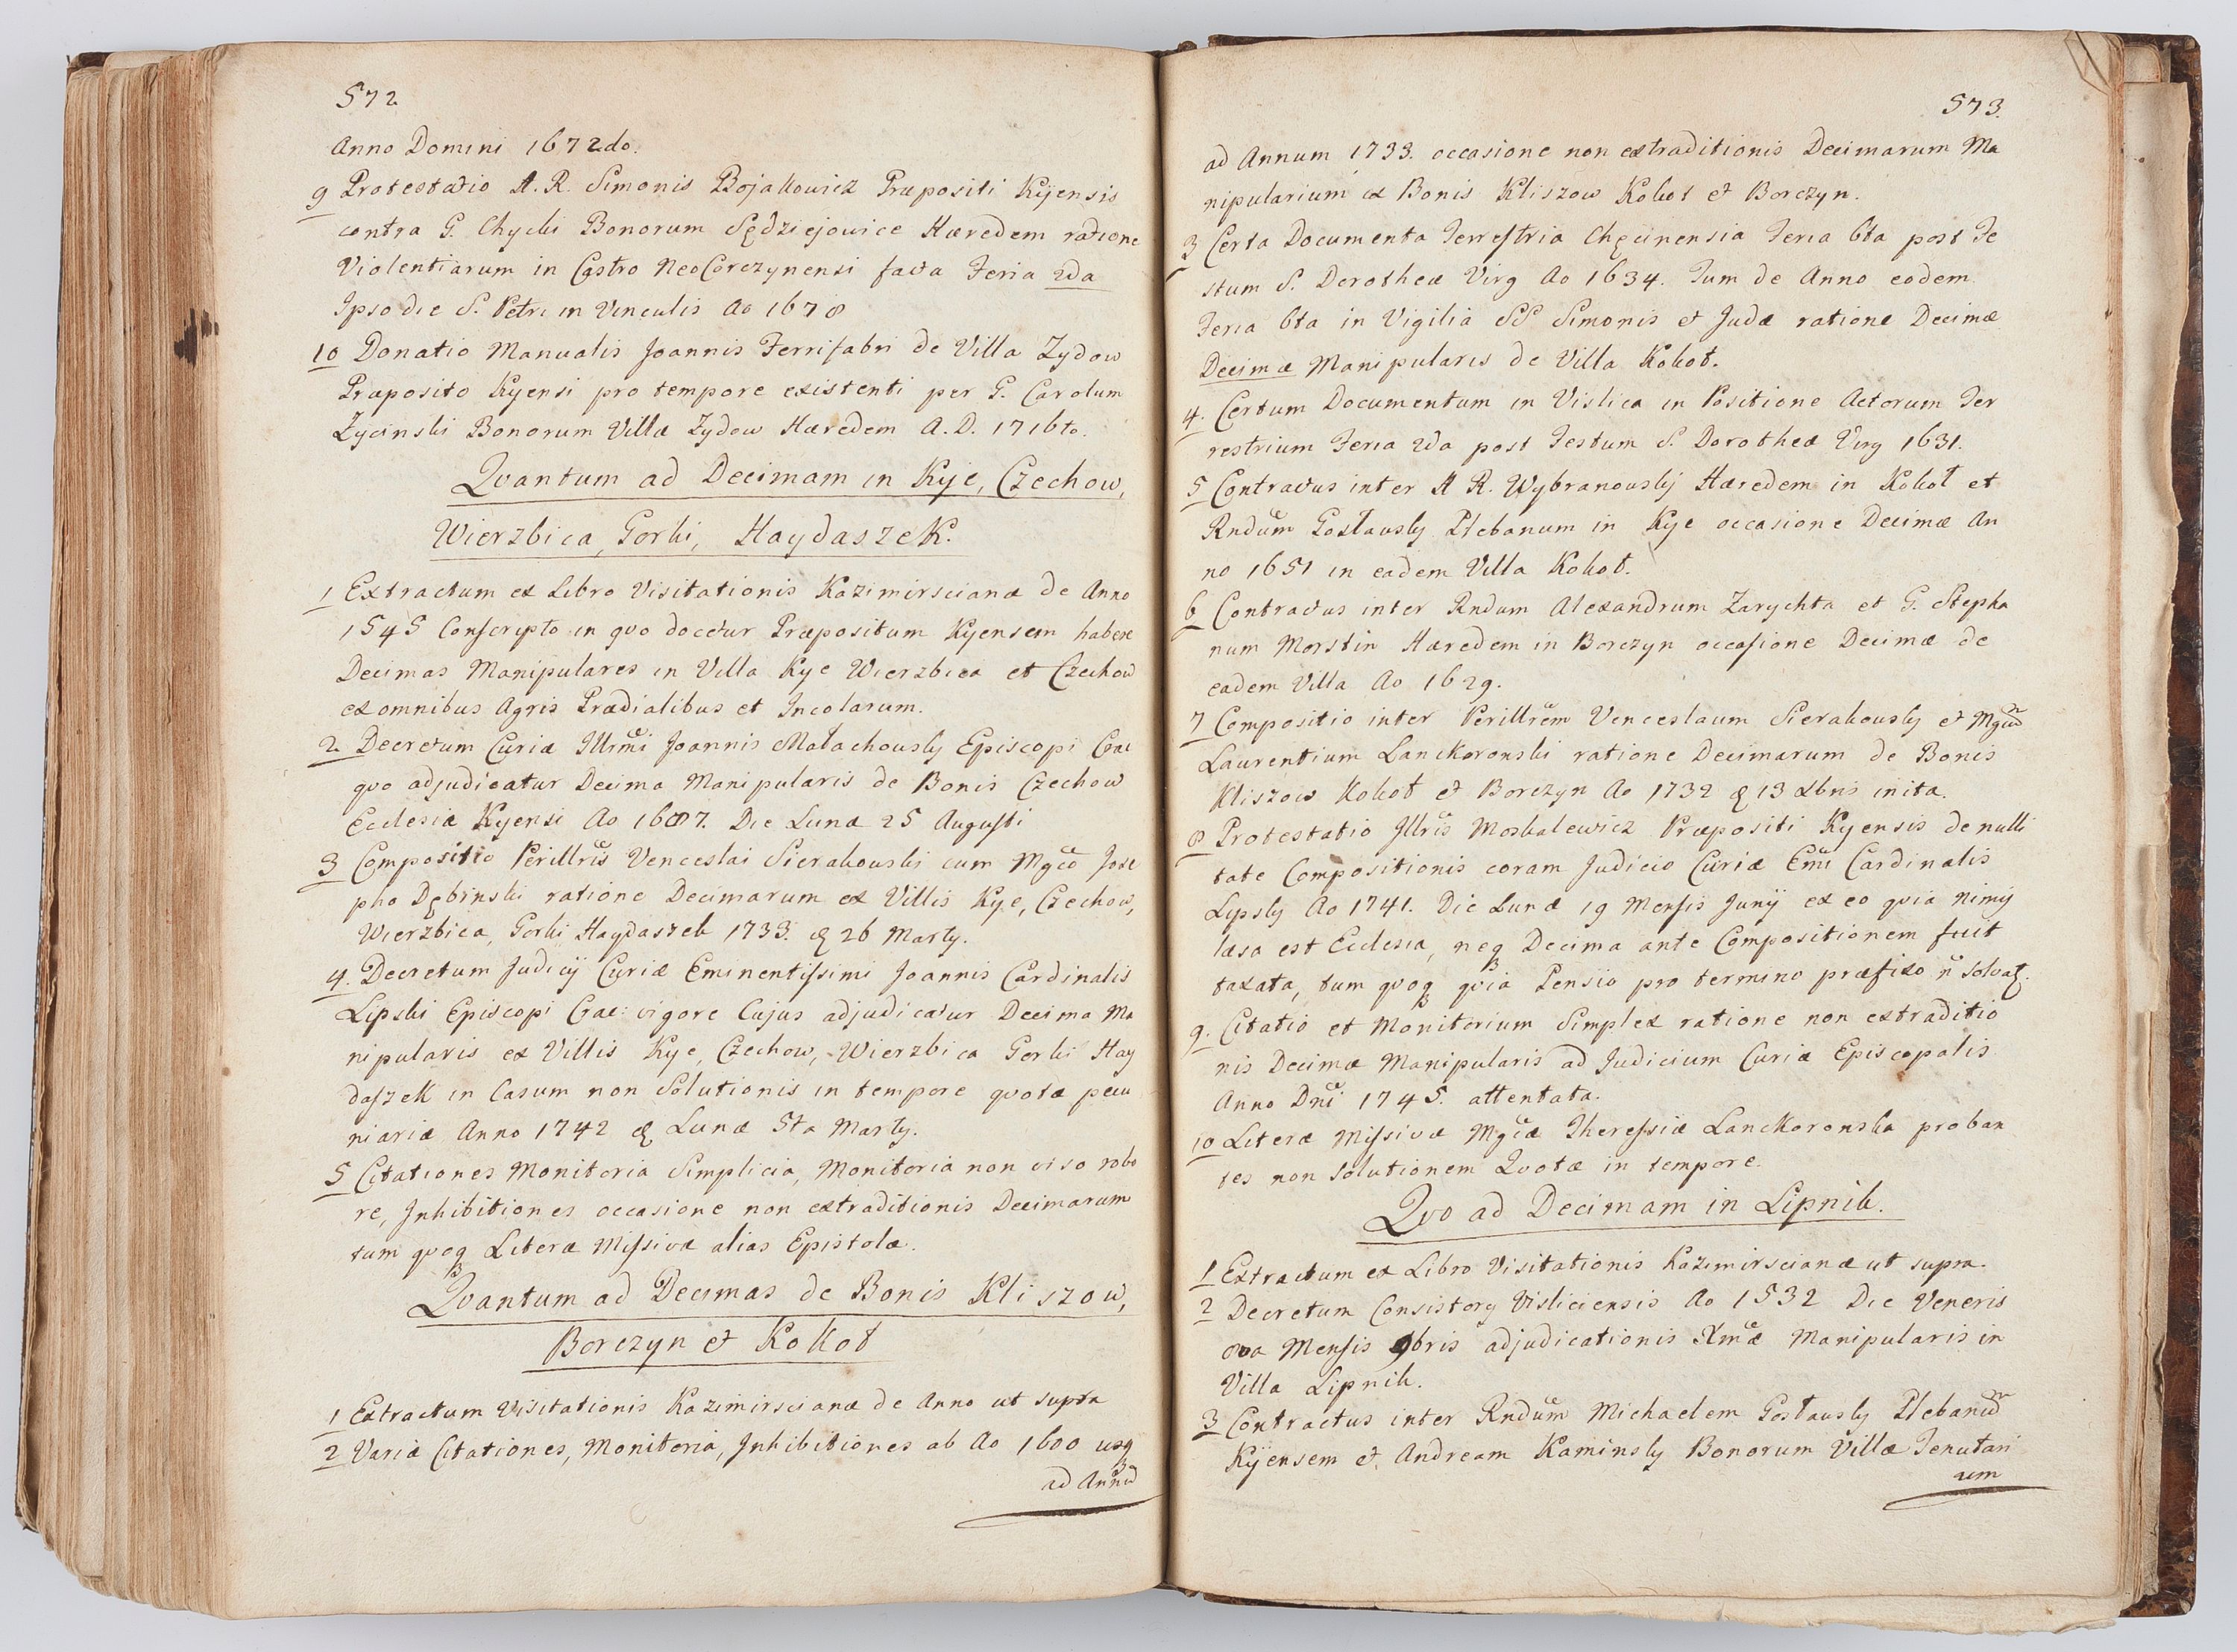 572
Anno Domini 1672do.
9 Protestatio A. R. Simonis Bojakowicz Præpositi Kijensis
contra G. Chycki Bonorum Sędziejowice Hæredem ratione
Violentiarum in Castro NeoCorczynensi facta Feria 2da
Ipso die S. Petri in Vinculis Ao 1678
10 Donatio Manualis Joannis Ferrifabri de Villa Zydow
Præposito Kyensi pro tempore existenti per G. Carolum
Zycinski Bonorum Villæ Zydow Hæredem A. D. 1716to.
Qvantum ad Decimam in Kije, Czechow,
Wierzbica, Gorki, Haydaszek.
1 Extractum ex Libro Visitationis Kazimirscianæ de Anno
1545 Conscripto in qvo docetur Præpositum Kyensem habere
Decimas Manipulares in Villa Kye Wierzbica et Czechow
ex omnibus Agris Prædialibus et Incolarum.
2 Decretum Curiæ Illrmi Joannis Małachowsky Episcopi Crac
qvo adjudicatur Decima Manipularis de Bonis Czechow
Ecclesiæ Kyensi Ao 1687. Die Lunæ 25 Augusti
3 Compositio Perillris Venceslai Sierakouski cum Mgco Jose
pho Dębinski ratione Decimarum ex Villis Kye, Czechow,
Wierzbica, Gorki Haydaszek 1733. d 26 Marty.
4. Decretum Judicij Curiæ Eminentissimi Joannis Cardinalis
Lipski Episcopi Crac: vigore Cujus adjudicatur Decima Ma
nipularis ex Villis Kye, Czechow, Wierzbica Gorki Hay
daszek in Casum non Solutionis in tempore qvotæ pecu
niariæ Anno 1742 d Lunæ 5ta Marty.
5 Citationes Monitoria Simplicia, Monitoria non viso robo
re, Inhibitiones occasione non extraditionis Decimarum
tum qvoq Literæ Missivæ alias Epistolæ.
Qvantum ad Decimas de Bonis Kliszow,
Borczyn et Kokot
1 Extractum Visitationis Kazimirscianæ de Anno ut supra
2 Variæ Citationes, Monitoria, Inhibitiones ab Ao 1600 usq
ad Annū
573.
ad Annum 1733. occasione non extraditionis Decimarum Ma
nipularium ex Bonis Kliszow Kokot et Borczyn.
3 Certa Documenta Terrestria Chęcinensia Feria 6ta post Fe
stum S. Dorotheæ Virg Ao 1634. Tum de Anno eodem
Feria 6ta in Vigilia SS Simonis et Judæ ratione Decimæ
Decimæ Manipularis de Villa Kokot.
4. Certum Documentum in Vislica in Positione Actorum Ter
restrium Feria 2da post Festum S. Dorotheæ Virg 1631.
5 Contractus inter A R. Wybranowskij Hæredem in Kokot et
Rndum Gostausky Plebanum in Kye occasione Decimæ An
no 1651 in eadem Villa Kokot.
6 Contractus inter Rndum Alexandrum Zarychta et G. Stepha
num Morstin Hæredem in Borczyn occasione Decimæ de
eadem Villa Ao 1629.
7 Compositio inter Perillrem Venceslaum Sierakousky et Mgcū
Laurentium Lanckoronski ratione Decimarum de Bonis
Kliszow Kokot et Borczyn Ao 1732 d 13 Xbris inita.
8 Protestatio Illris Moskalewicz Præpositi Kyensis de nulli
tate Compositionis coram Judicio Curiæ Emi Cardinalis
Lipsky Ao 1741. Die Lunæ 19 Mensis Junij ex eo qvia nimij
læsa est Ecclesia, neq Decima ante Compositionem fuit
taxata, tum qvoq qvia Pensio pro termino præfixo ñ solvat.
9. Citatio et Monitorium Simplex ratione non extraditio
nis Decimæ Manipularis ad Judicium Curiæ Episcopalis
Anno Dni 1745. attentata.
10 Literæ Missivæ Mgcæ Theressiæ Lanckoronska proban
tes non solutionem Qvotæ in tempore.
Qvo ad Decimam in Lipnik.
1 Extractum ex Libro Visitationis Kazimirscianæ ut supra.
2 Decretum Consistory Visliciensis Ao 1532 Die Veneris
8va Mensis 9bris adjudicationis Xmæ Manipularis in
Villa Lipnik.
3 Contractus inter Rndum Michaelem Gostausky Plebanū
Kijensem et Andream Kaminsky Bonorum Villæ Tenutari
um